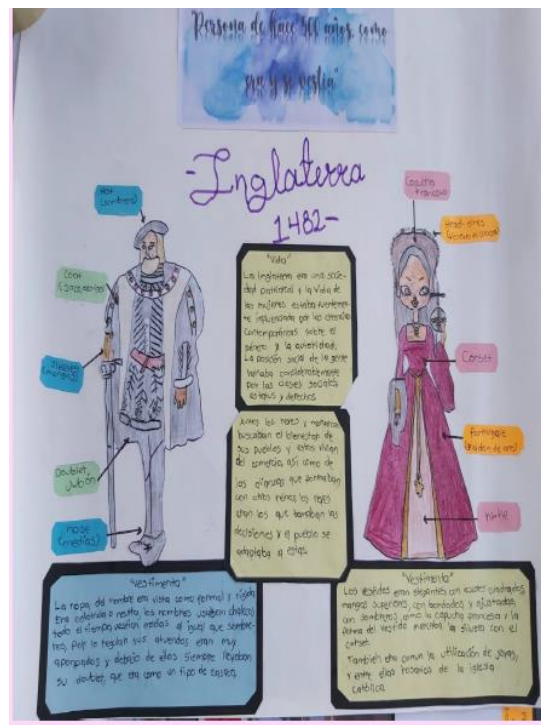 Persona de hace 500 años, como
era y se vestia"
-Inglaterra
1482-
Hat
(sombrero)
Coat
Sleeves
(mangas)
Doublet,
Jubón
Hose
(medias)
Capucha
Francesa
Corset
Farthingale
Kirtle
"Vida"
La Inglaterra era una socie-
dad patriarcal y la vida de
las mujeres estaba fuertemen-
te influenciada por las creencias
contemporáneas sobre el
género y la autoridad.
La posición social de la gente
variaba considerablemente
por las clases sociales
estatus y derechos
Antes los reyes y monarcas
buscaban el bienestar de
sus pueblos y estos vivian
del comercio, así como de
las alianzas que formaban
con otros reinos, los reyes
eran los que tomaban las
decisiones y el pueblo se
adaptaba a estas.
"Vestimenta"
La ropa del hombre era vista como formal y rígida
Era colorida o neutra, los hombres usaban chalecos
todo el tiempo, vestian medias al igual que sombre-
ros, Por lo regular sus atuendos eran muy
apomposos y debajo de ellos siempre llevaban
su doublet, que era como un tipo de camisa.
"Vestimenta"
Los vestidos eran elegantes con escotes cuadrados,
mangas superiores, con bordados y ajustados,
con sombreros como la capucha francesa y la
forma del vestido mantenia la silueta con el
corset.
También era comun la utilización de joyas,
y entre ellas rosarios de la iglesia
católica.